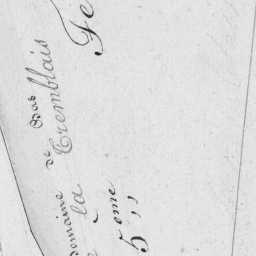 Domaine de Bas
la Tremblais
Fe
5eme